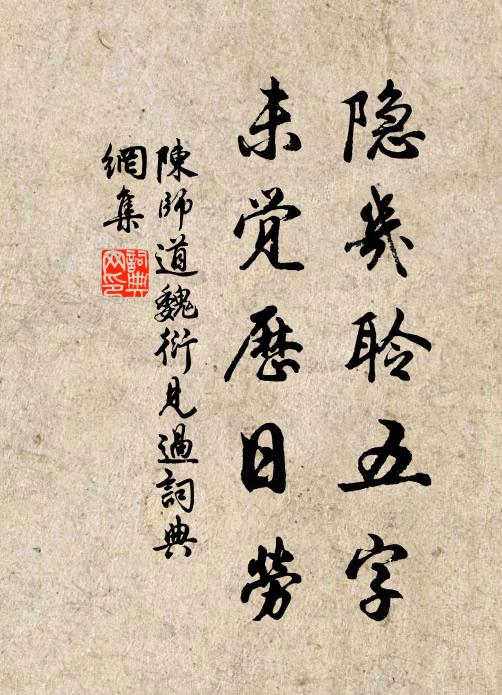 隐幾聆五字
未觉歷日勞
陳師道魏衍見過詞典
網集
詞典
网印